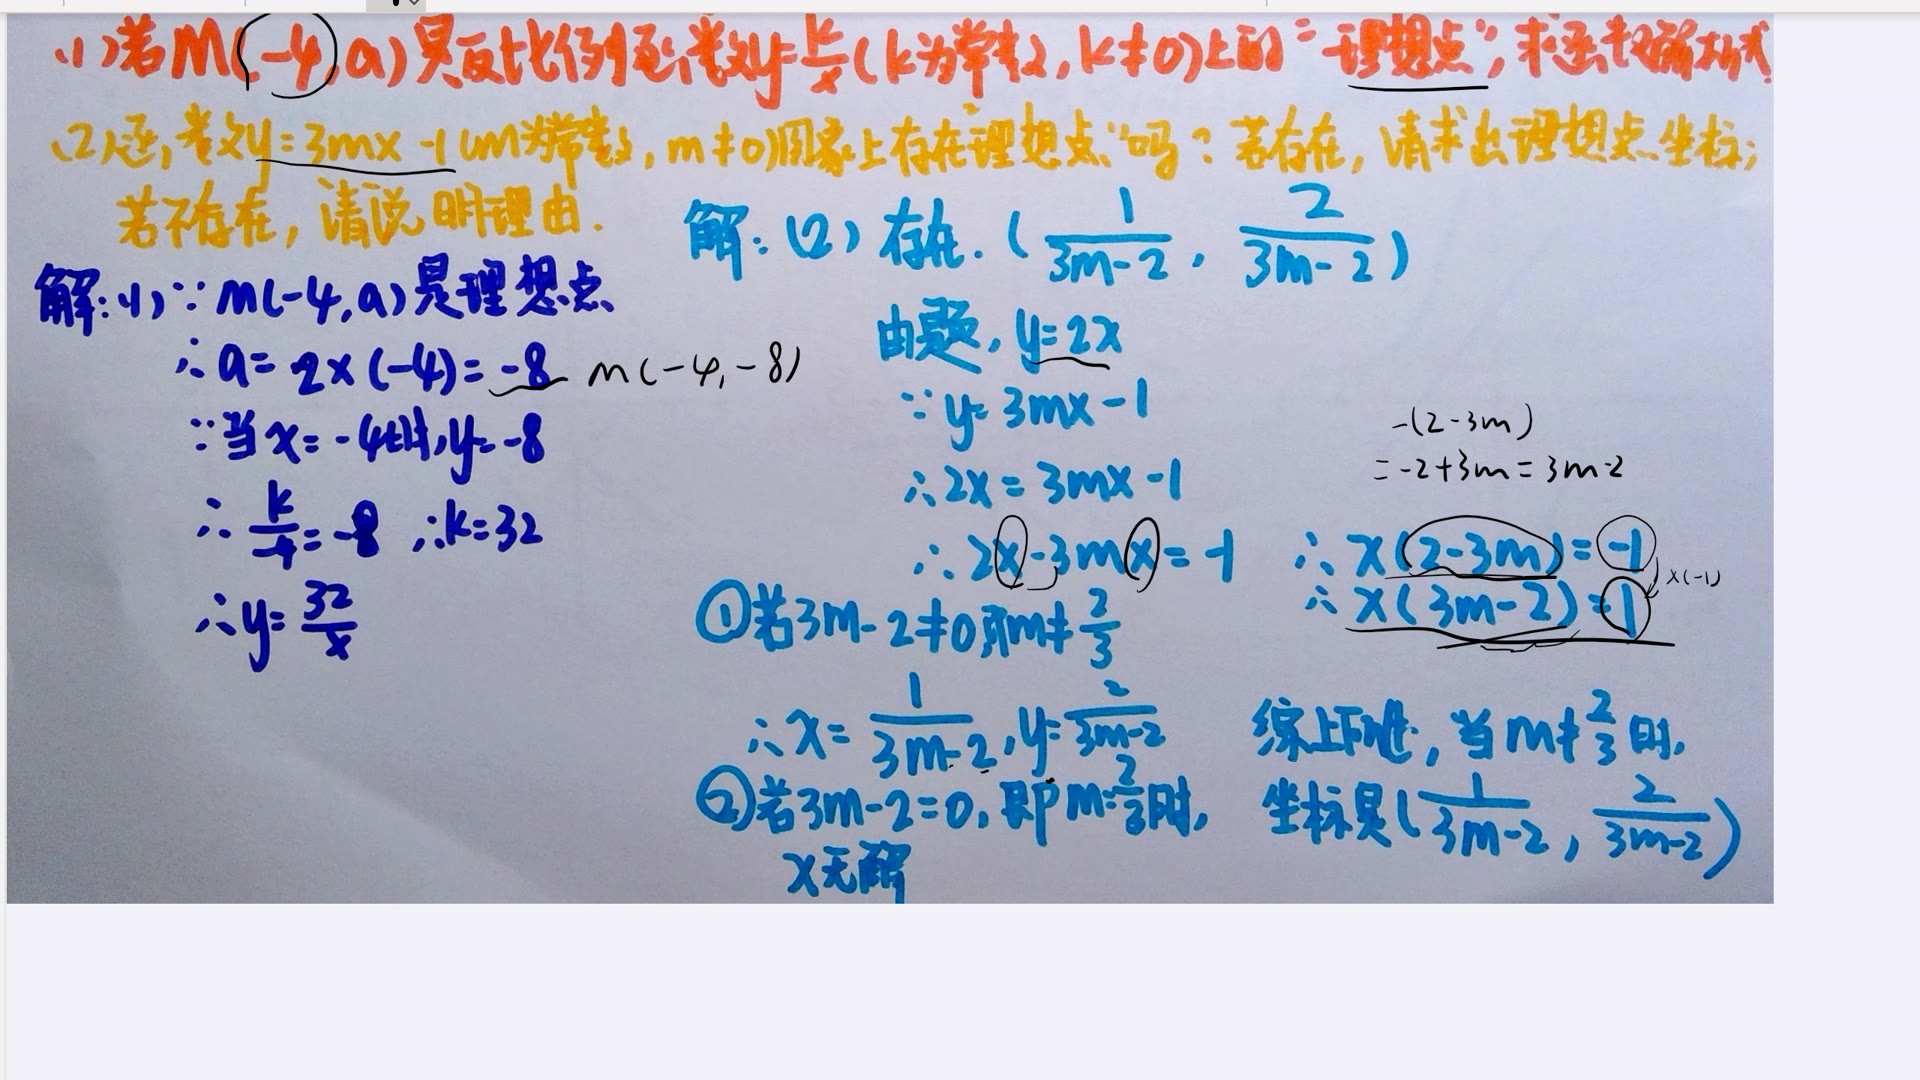 (1)若M(-4,a)是反比例函数y=k/x(k为常数,k≠0)上的“理想点”,求函数解析式
(2)函数y=3mx-1(m为常数,m≠0)图象上存在“理想点”吗?若存在,请求出理想点坐标;
若不存在,请说明理由.
解:(1)∵m(-4,a)是理想点
∴a=2×(-4)=-8 m(-4,-8)
∵当x=-4时,y=-8
∴k/-4=-8 ∴k=32
∴y=32/x
解:(2)存在.(1/3m-2,2/3m-2)
由题,y=2x
∵y=3mx-1
∴2x=3mx-1
∴2x-3mx=-1
-(2-3m)
=-2+3m=3m-2
∴x(2-3m)=-1
x(-1)
∴x(3m-2)=1
①若3m-2≠0,即m≠2/3
∴x=1/3m-2,y=2/3m-2
②若3m-2=0,即m=2/3时,
x无解
综上所述,当m≠2/3时,
坐标是(1/3m-2,2/3m-2)